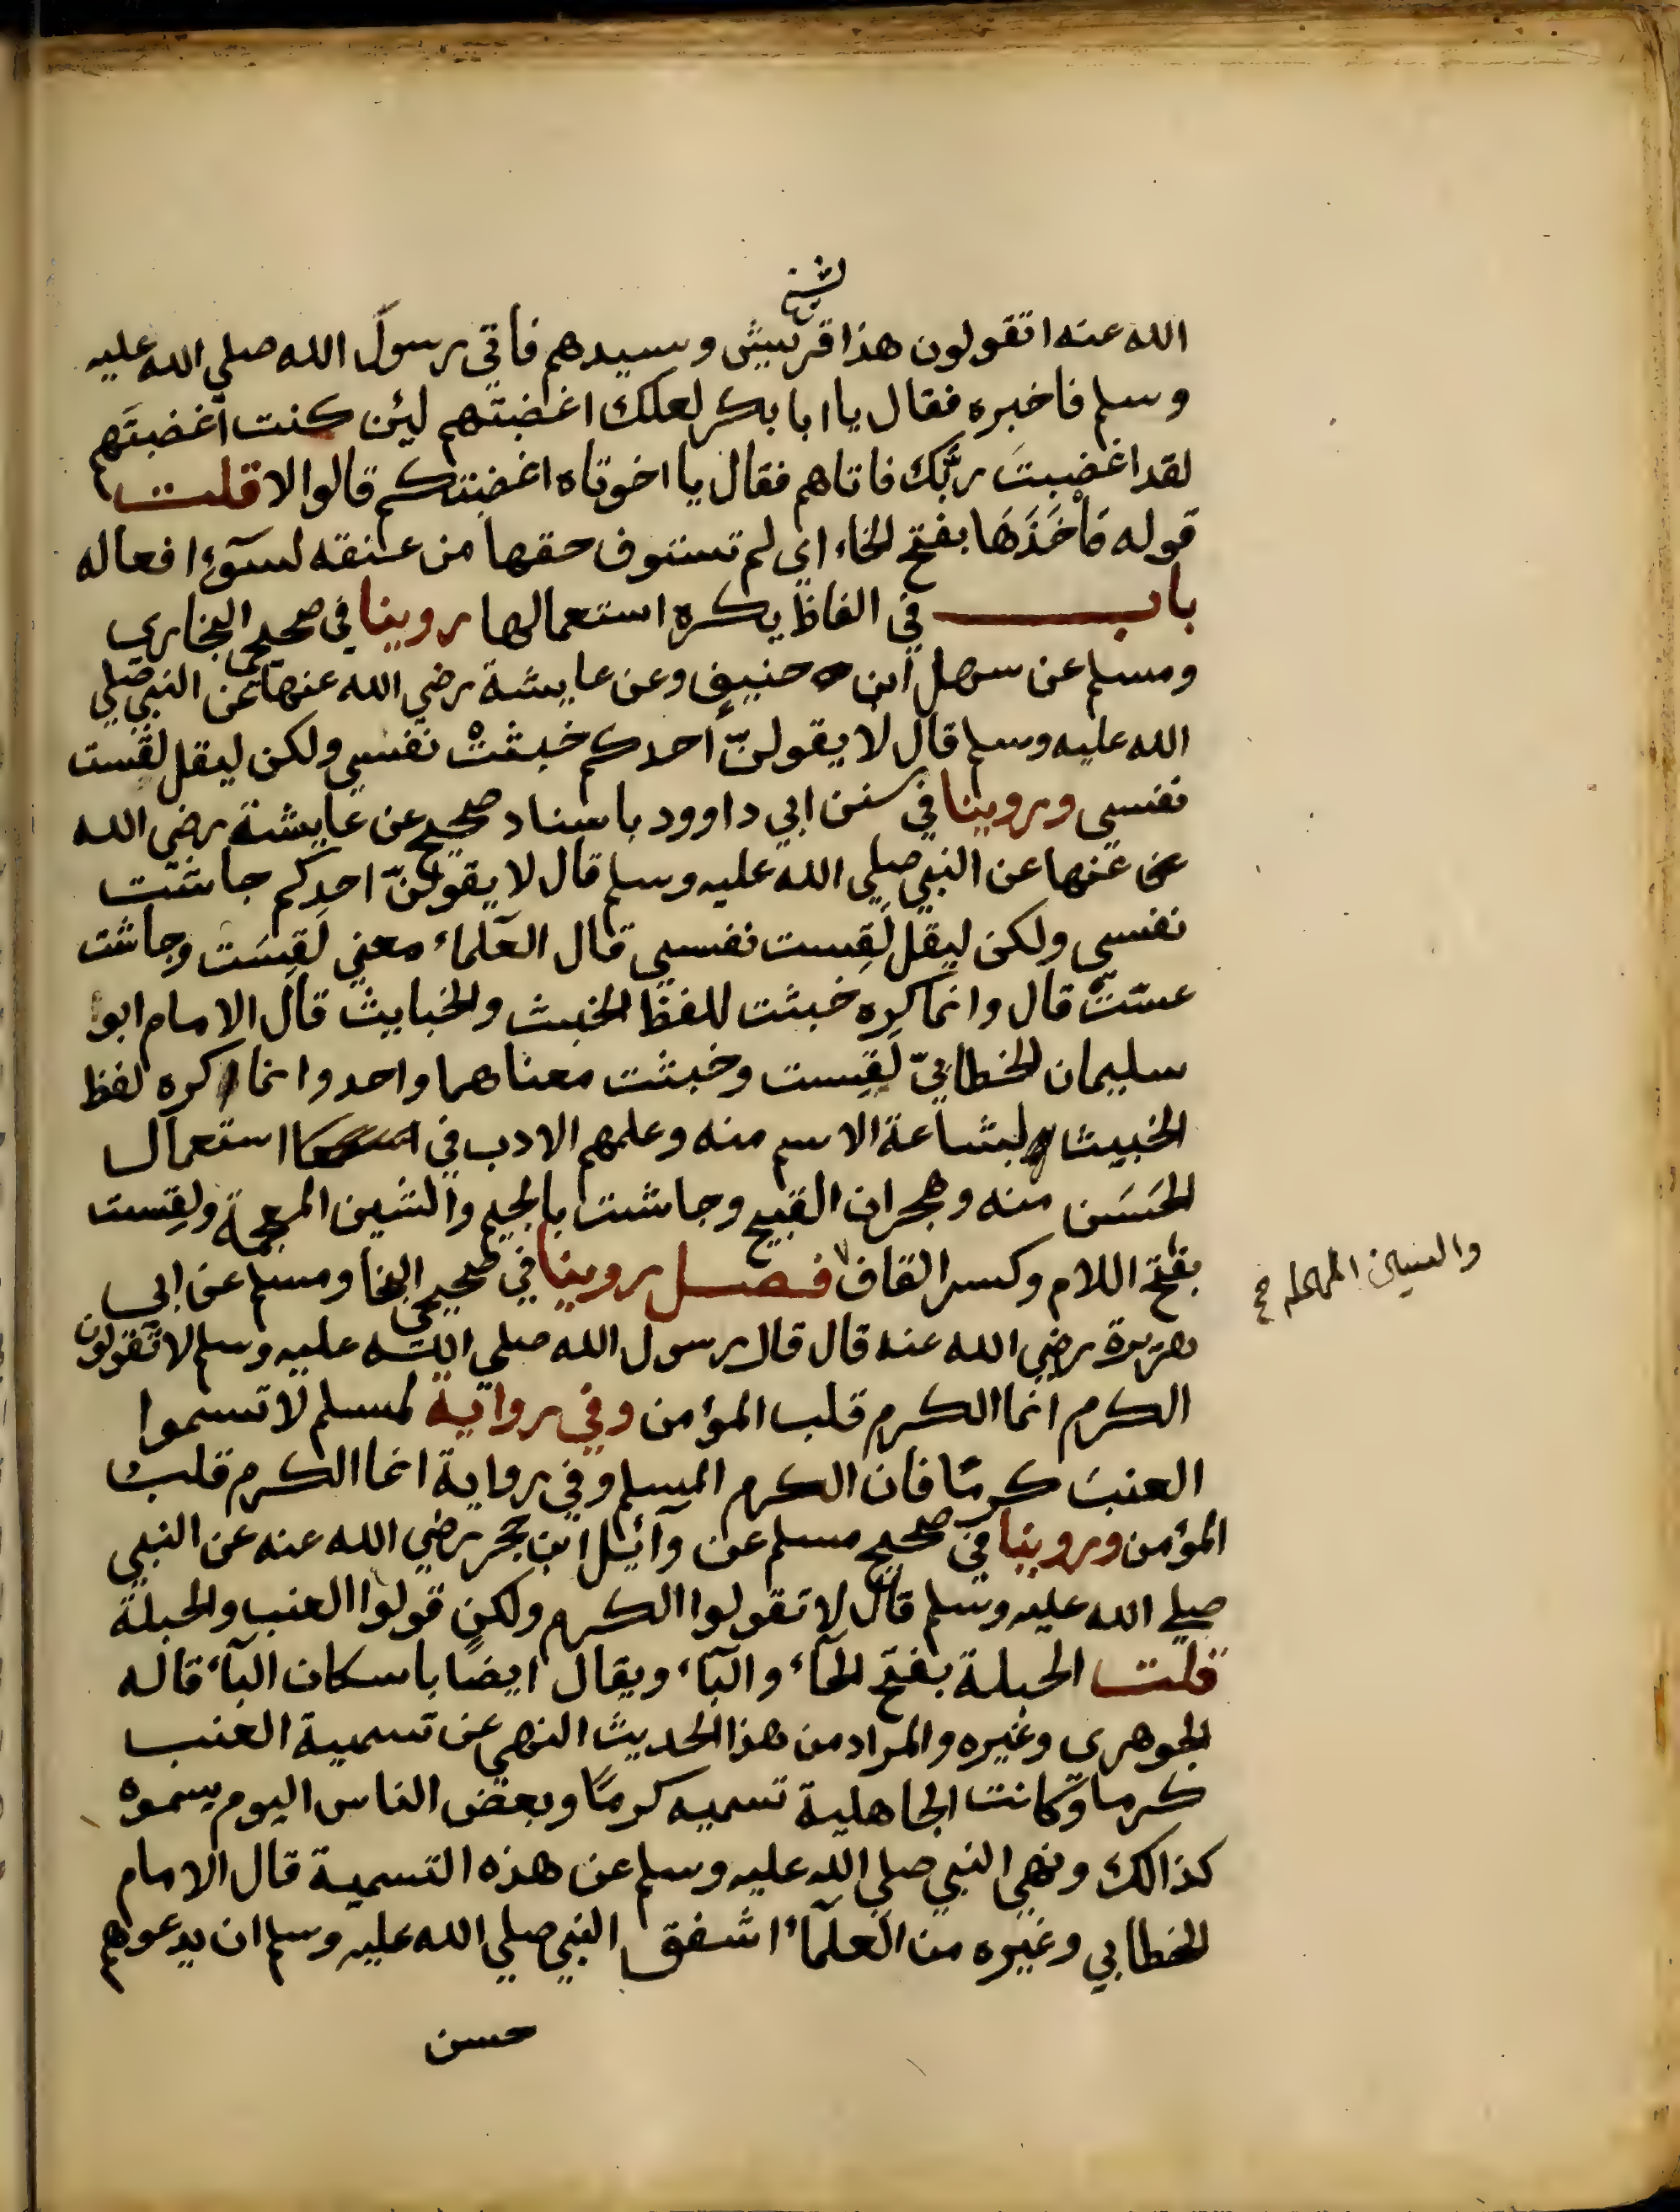 لشيخ
الله عنه اتقولون هذا قريش وسيدهم فاتي رسول الله صلي الله عليه
وسلم فاخبره فقال يا ابا بكر لعلك اغضبتهم ليئن كنت اغضبتهم
لقد اغضبت ربّك فاتاهم فقال يا اخوتاه اغضبتكم قالوا لا قلت
قوله مَأْخَذَهَا بفتح الخاء اي لم تستوف حقها من عنقه لسوٓء افعاله
باب في الفاظ يكره استعمالها روينا في صحيحي البخاري
ومسلم عن سهل ابن حنيفٍ وعن عايشة رضي الله عنها عن النبي صلي
الله عليه وسلم قال لا يقولنّ احدكم خبثتْ نفسي ولكن ليقل لقست
نفسي وروينا في سنن ابي داوود باسناد صحيح عن عايشة رضي الله
عنها عن النبي صلي الله عليه وسلم قال لا يقولنّ احدكم جاشت
نفسي ولكن ليقل لَقِست نفسي قال العلماء معني لَقِسَت وجاشت
عثت قال وانما كره خبثت للفظ الخبث والخبايث قال الامام ابوا
سليمان الخطابيّ لَقِست وخبثت معناهما واحد وانما كره لفظ
الخبيث لبشاعة الاسم منه وعلمهم الادب في استعمال
الحَسَن منه وهجران القبيح وجاشت بالجيم والشين المعجمة ولقِست
بفتح اللام وكسر القاف فصل روينا في صحيحي البخا ومسلم عن ابي
والسين المهمله صح
هريرة رضي الله عنه قال قال رسول الله صلي الله عليه وسلم لا تقولون
الكرم انما الكرم قلب المؤمن وفي رواية لمسلم لا تسموا
العنبَ كرمًا فان الكرم المسلم وفي رواية انما الكرم قلب
المؤمن وروينا في صحيح مسلم عن وآئيل ابن حجر رضي الله عنه عن النبي
صلي الله عليه وسلم قال لا تقولوا الكرم ولكن قولوا العنب والحبلة
قلت الحبلة بفتح الحآء والبآء ويقال ايضًا باسكان البآء قاله
الجوهري وغيره والمراد من هذا الحديث النهي عن تسمية العنب
كرما وكانت الجاهلية تسميه كرمًا وبعض الناس اليوم يسموه
كذالك ونهي النبي صلي الله عليه وسلم عن هذه التسمية قال الامام
الخطابي وغيره من العلمآء اشفق النبي صلي الله عليه وسلم ان يدعوهم
حسن